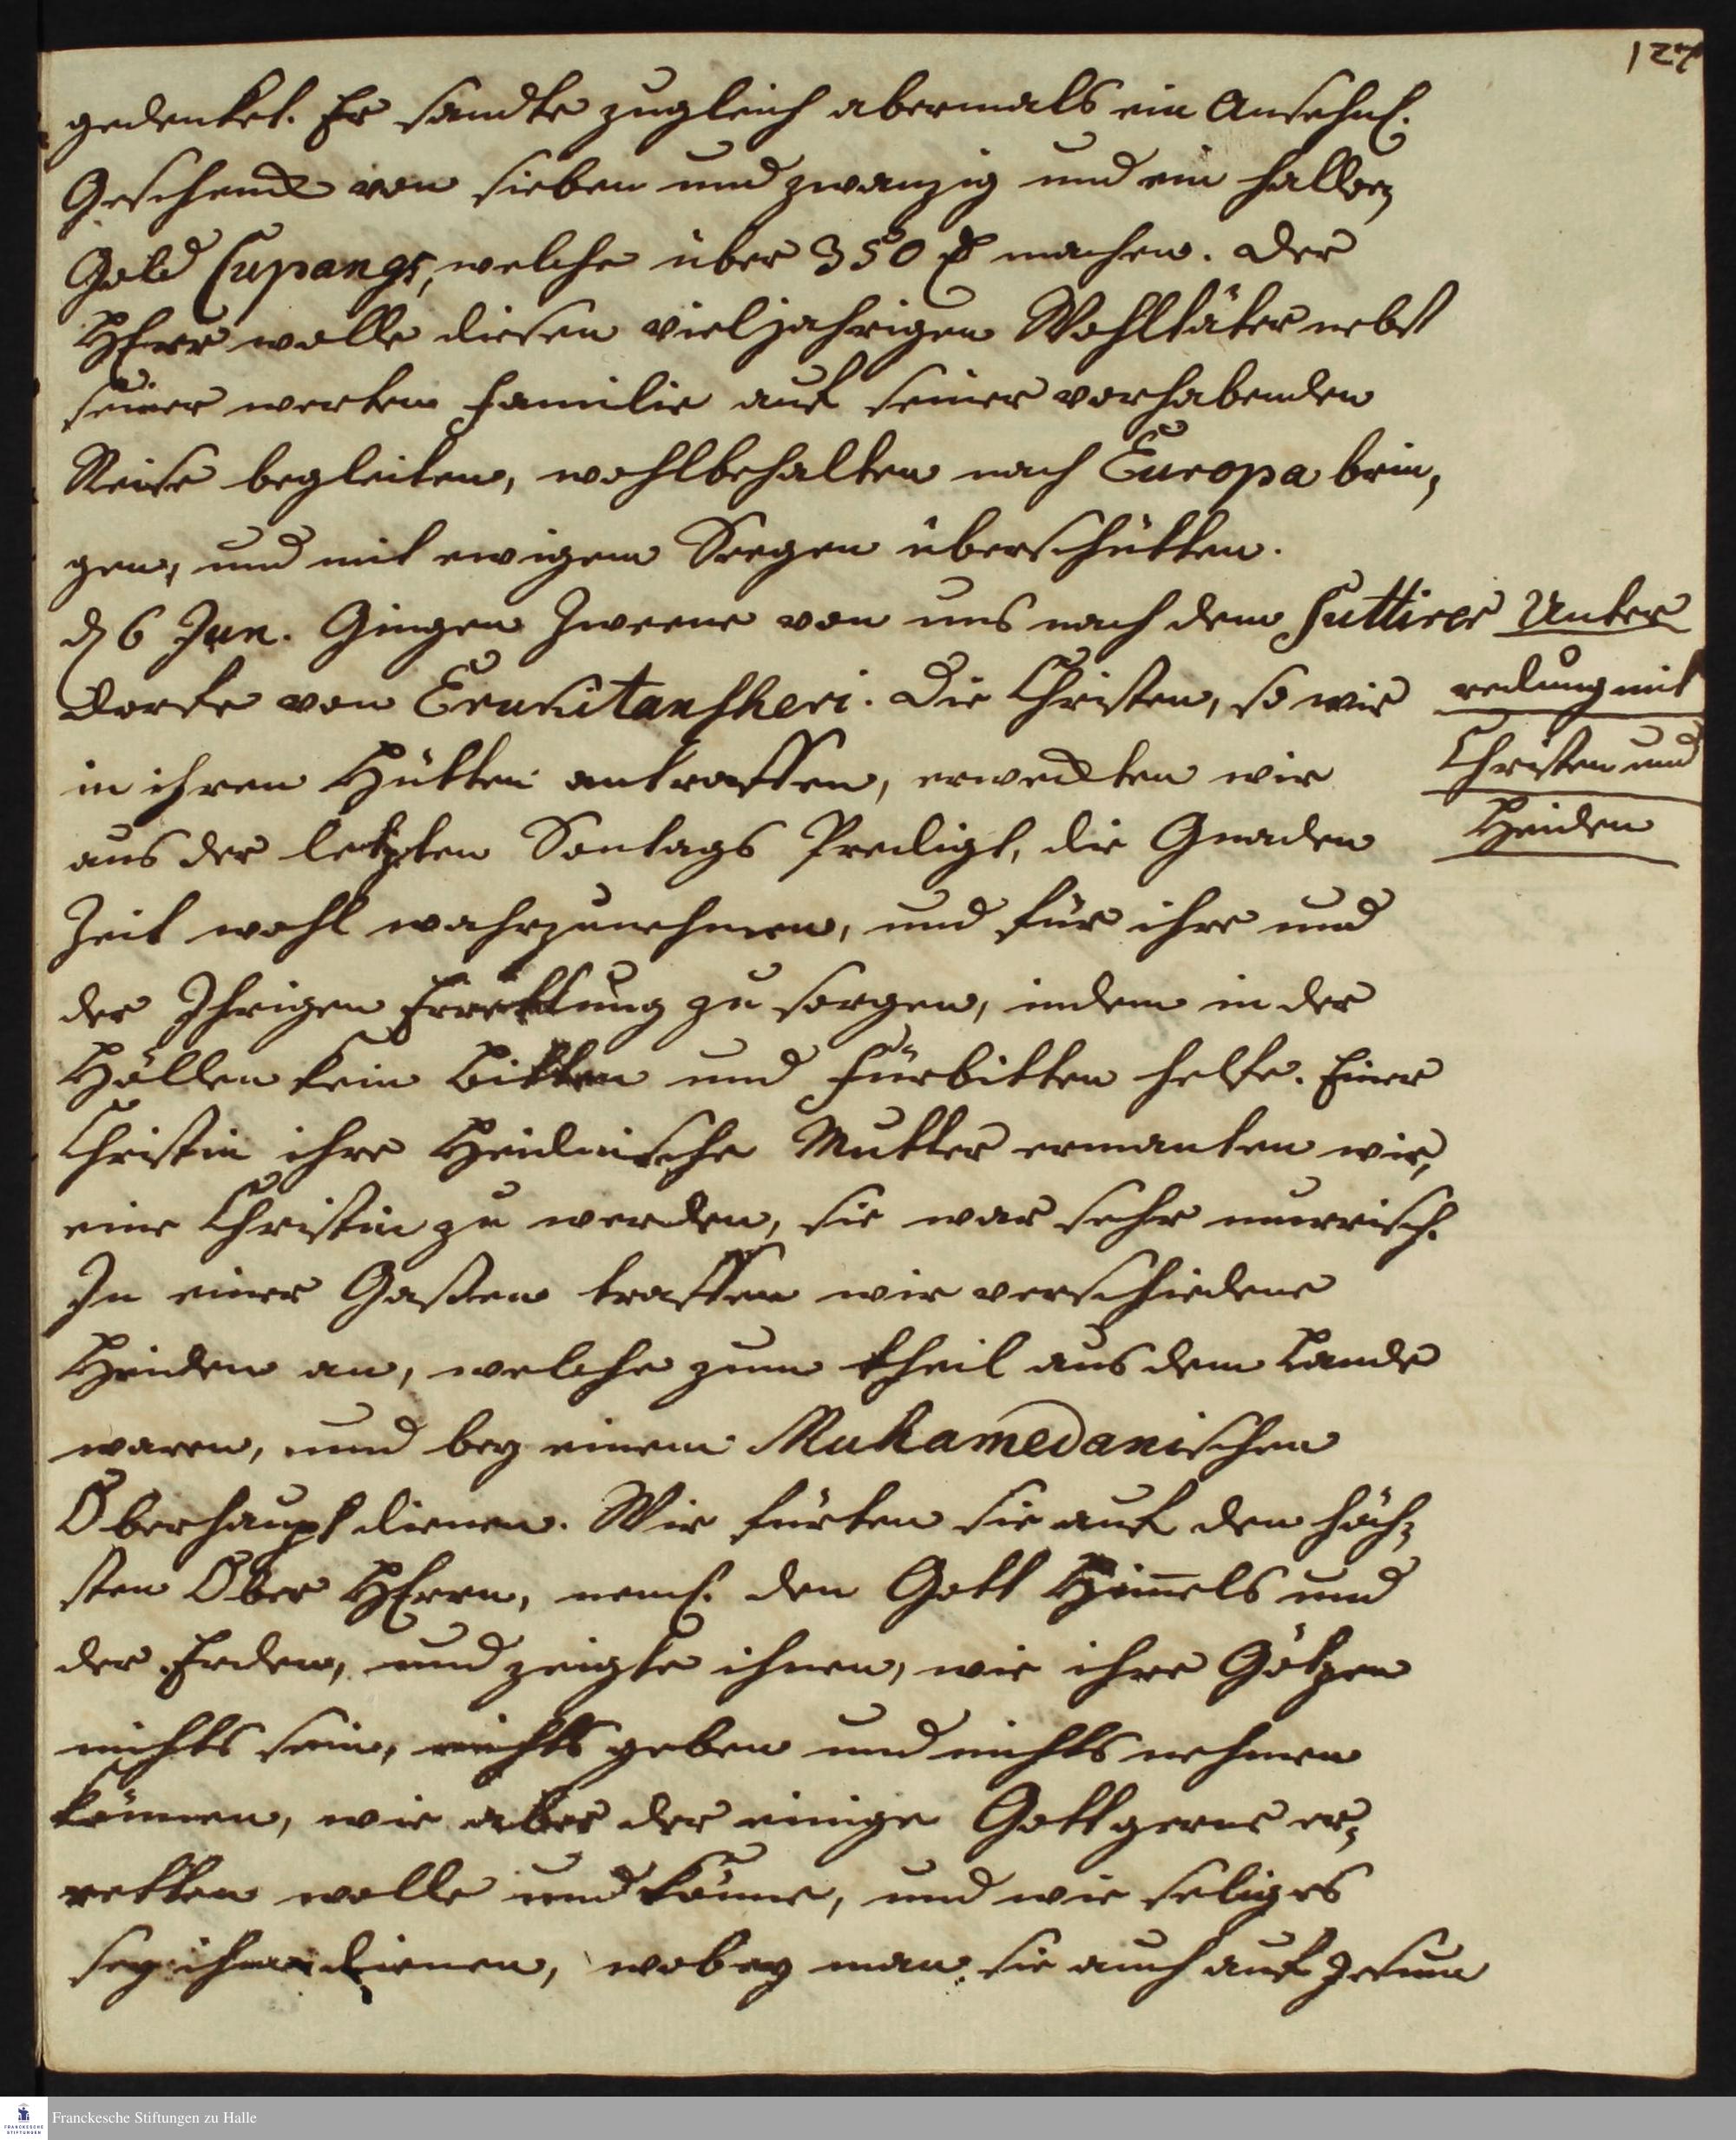 127
gedenket. Er sandte zugleich abermals ein Ansehnl.
Geschenck von sieben und zwanzig und ein halben
Gold Cupangs, welche über 350 machen. Der
HErr wolle diesen vieljahrigen Wohltäter nebst
seiner werten Familie auf seiner vorhabenden
Reise begleiten, wohlbehalten nach Europa brin,
gen, und mit ewigem Seegen überschütten.
d 6 Jun. Gingen Zweene von uns nach dem Suttirer
Dorfe von Erukitanscheri. Die Christen, so wir
in ihren Hütten antraffen, erweckten wir
aus der letzten Sontags Predigt, die Gnaden
Zeit wohl wahrzunehmen, und für ihre und
der Ihrigen Errettung zu sorgen, indem in der
Höllen kein Bitten und Fürbitten helfe. Einer
Christin ihre Heidnische Mutter ermanten wir,
eine Christin zu werden, sie war sehr murrisch.
In einer Gassen traffen wir verschiedene
Heiden an, welche zum theil aus dem Lande
waren, und bey einem Muhamedanischen
Oberhaupt dienen. Wir fürten sie auf den höch,
sten Ober HErrn, neml. den Gott Himels und
der Erden, und zeigte ihnen, wie ihre Götzen
nichts sein, nichts geben und nichts nehmen
können, wie aber der einige Gott gerne er,
retten wolle und könne, und wie selig es
sey ihm dienen, wobey man sie auch auf Jesum
Unter
redung mit
Christen und
Heiden
Franckesche Stiftungen zu Halle